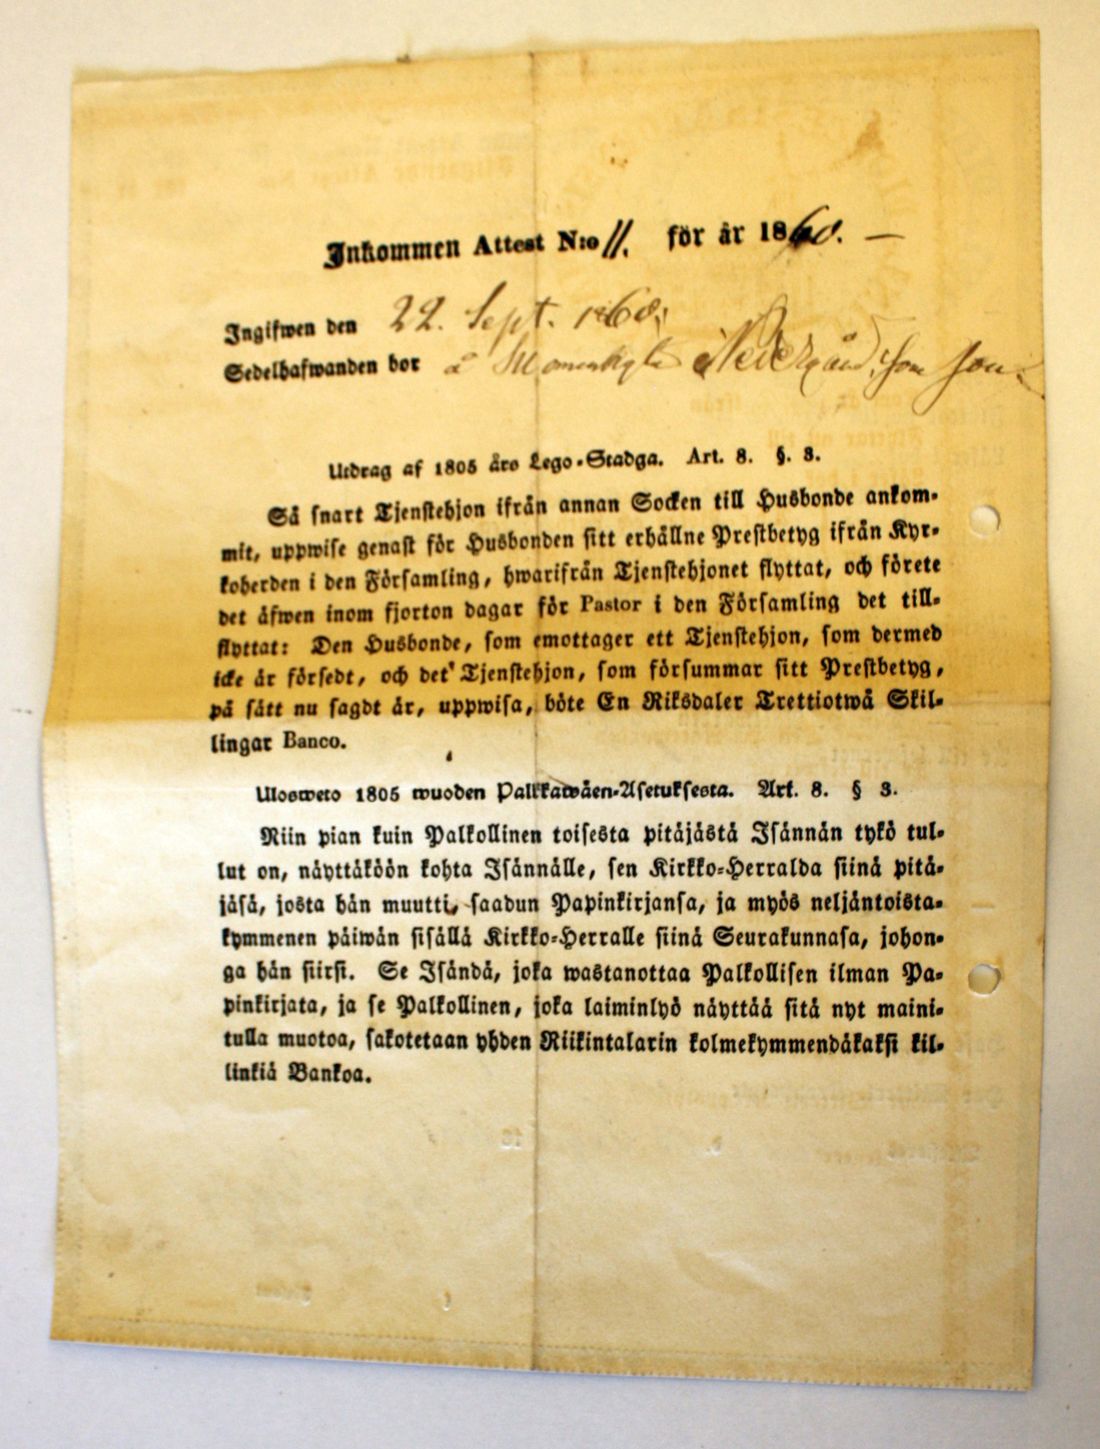 Inkommen Attest N:o 11. för år 1860. —
Ingifwen den 22. Sept. 1860.
Sedelhafwanden bor å Nedergård, som
Utdrag af 1805 års Lego-Stadga. Art. 8. §. 3.
Så snart Tjenstehjon ifrån annan Socken till Husbonde ankom-
mit, uppwise genast för Husbonden sitt erhållne Prestbetyg ifrån Kyr-
koherden i den Församling, hwarifrån Tjenstehjonet flyttat, och förete
det äfwen inom fjorton dagar för Pastor i den Församling det till-
flyttat: Den Husbonde, som emottager ett Tjenstehjon, som dermed
icke är försedt, och det Tjenstehjon, som försummar sitt Prestbetyg,
på sätt nu sagdt är, uppwisa, böte En Riksdaler Trettiotwå Skil-
lingar Banco.
Ulosweto 1805 wuoden Palkkawäen-Asetuksesta. Art. 8. § 3.
Niin pian kuin Palkollinen toisesta pitäjästä Isännän tykö tul-
lut on, näyttäköön kohta Isännälle, sen Kirkko-Herralda siinä pitä-
jäsä, josta hän muutti, saadun Papinkirjansa, ja myös neljäntoista-
kymmenen päiwän sisällä Kirkko-Herralle siinä Seurakunnasa, johon-
ga hän siirsi. Se Isändä, joka wastanottaa Palkollisen ilman Pa-
pinkirjata, ja se Palkollinen, joka laiminlyö näyttää sitä nyt maini-
tulla muotoa, sakotetaan yhden Riikintalarin kolmekymmendäkaksi kil-
linkiä Bankoa.